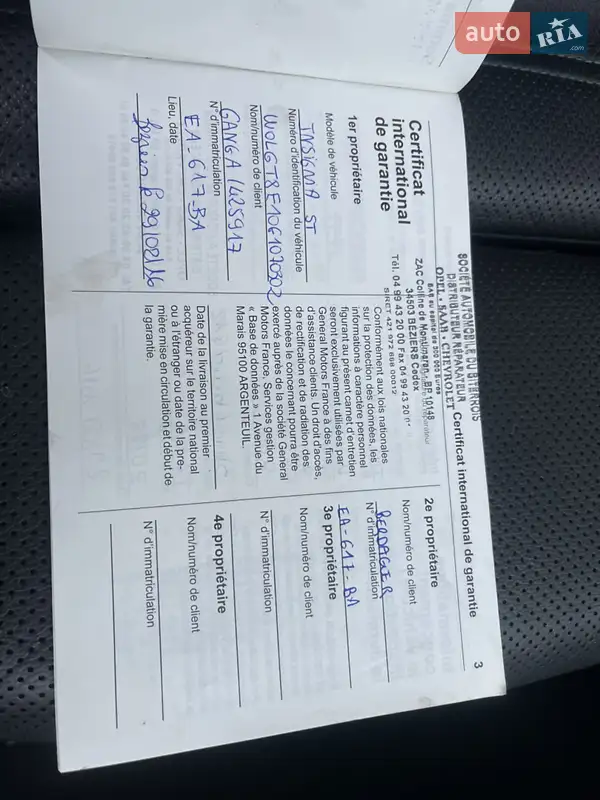 auto RIA .com
Certificat international de garantie
3
SOCIETE AUTOMOBILE DU BITERROIS
DISTRIBUTEUR REPARATEUR
OPEL - SAAB - CHEVROLET
ZAC Colline de Montimaran - BP 10148
34503 BÉZIERS Cedex
Tél. 04 99 43 20 00 Fax 04 99 43 20
SIRET 421 972 868 00012
Certificat
international
de garantie
1er propriétaire
Modèle de véhicule
INSIGNIA ST
Numéro d'identification du véhicule
W0LGT8E1061070302
Nom/numéro de client
GANGA / 425917
N° d'immatriculation
EA-617-BA
Lieu, date
Béziers le 29/02/16
Conformément aux lois nationales
sur la protection des données, les
informations à caractère personnel
figurant au présent carnet d'entretien
seront exclusivement utilisées par
General Motors France à des fins
d'assistance clients. Un droit d'accès,
de rectification et de radiation des
données le concernant pourra être
exercé auprès de la société General
Motors France, Services gestion
« Base de données » 1 Avenue du
Marais 95100 ARGENTEUIL.
Date de la livraison au premier
acquéreur sur le territoire national
ou à l'étranger ou date de la pre-
mière mise en circulation et début de
la garantie.
2e propriétaire
Nom/numéro de client
BERDAGUER
N° d'immatriculation
EA-617-BA
3e propriétaire
Nom/numéro de client
N° d'immatriculation
4e propriétaire
Nom/numéro de client
N° d'immatriculation